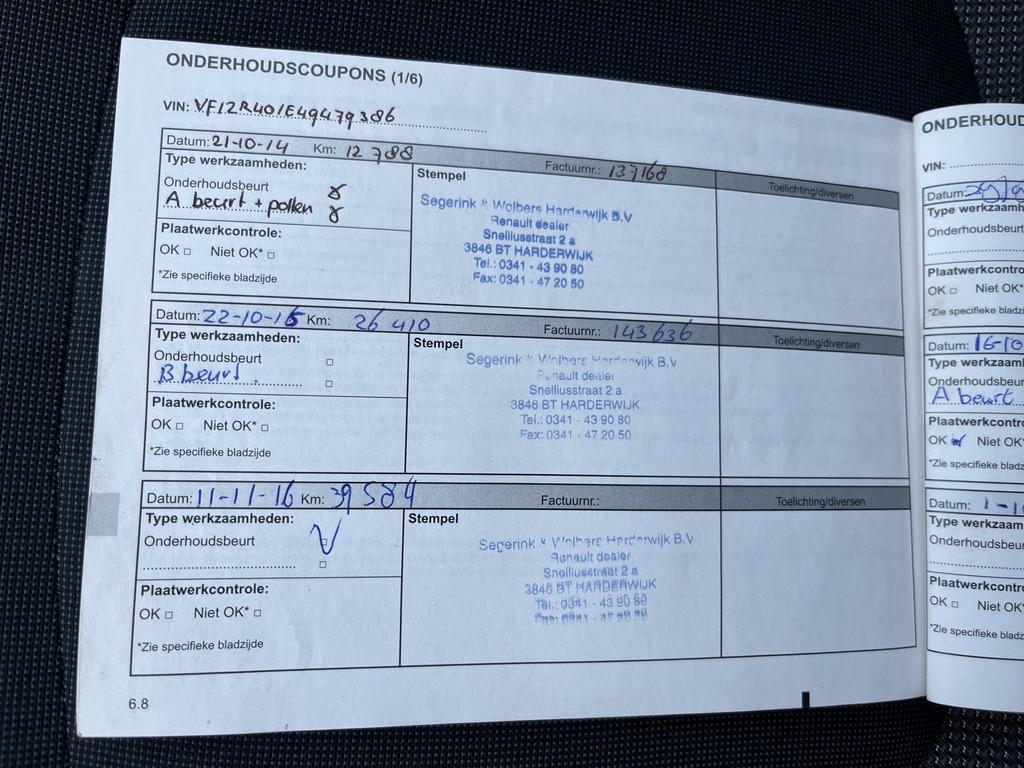 ONDERHOUDSCOUPONS (1/6)
VIN: VF12R401E49479386
Datum: 21-10-14 Km: 12 788 Factuurnr.: 137168
Type werkzaamheden:
Onderhoudsbeurt
A beurt + pollen
Plaatwerkcontrole:
OK □ Niet OK* □
*Zie specifieke bladzijde
Stempel
Segerink & Wolbers Harderwijk B.V
Renault dealer
Snelliusstraat 2 a
3846 BT HARDERWIJK
Tel.: 0341 - 43 90 80
Fax: 0341 - 47 20 50
Toelichting/diversen
Datum: 22-10-15 Km: 26 410 Factuurnr.: 143636
Type werkzaamheden:
Onderhoudsbeurt □
B beurt. □
Plaatwerkcontrole:
OK □ Niet OK* □
*Zie specifieke bladzijde
Stempel
Segerink & Wolbers Harderwijk B.V
Renault dealer
Snelliusstraat 2 a
3846 BT HARDERWIJK
Tel.: 0341 - 43 90 80
Fax: 0341 - 47 20 50
Toelichting/diversen
Datum: 11-11-16 Km: 39 584 Factuurnr.:
Type werkzaamheden:
Onderhoudsbeurt
Plaatwerkcontrole:
OK □ Niet OK* □
*Zie specifieke bladzijde
Stempel
Segerink & Wolbers Harderwijk B.V
Renault dealer
Snelliusstraat 2 a
3846 BT HARDERWIJK
Tel.: 0341 - 43 90 80
Fax: 0341 - 47 20 50
Toelichting/diversen
6.8
ONDERHOUD
VIN:
Datum:
Type werkzaamh
Onderhoudsbeurt
Plaatwerkcontro
OK □ Niet OK*
*Zie specifieke blad
Datum: 16-10
Type werkzaam
Onderhoudsbeur
A beurt
Plaatwerkcontr
OK Niet OK*
*Zie specifieke bladz
Datum: 1-1
Type werkzaam
Onderhoudsbeu
Plaatwerkcontr
OK □ Niet OK*
*Zie specifieke bladz